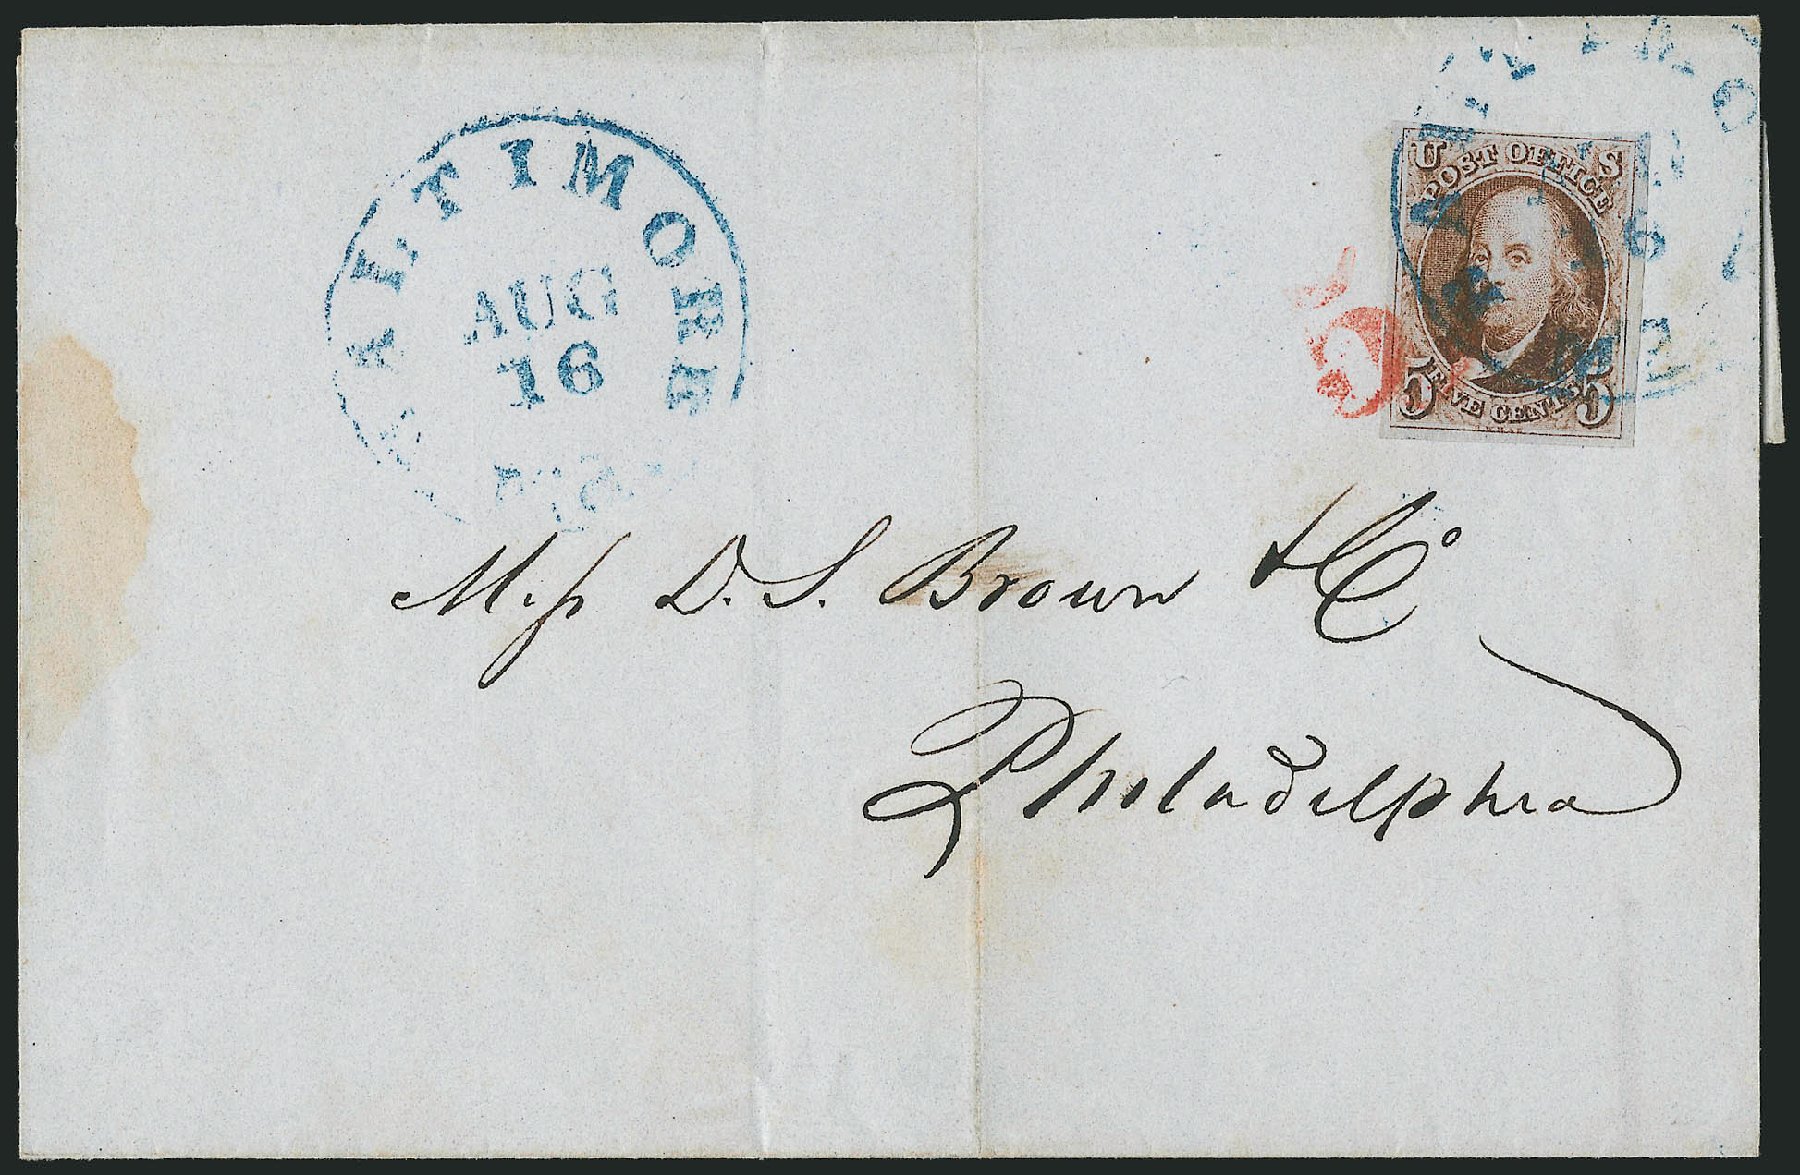 BALTIMORE
AUG
16
Md.
5
U S
POST OFFICE
5 FIVE CENTS 5
Mess D. S. Brown & Co
Philadelphia